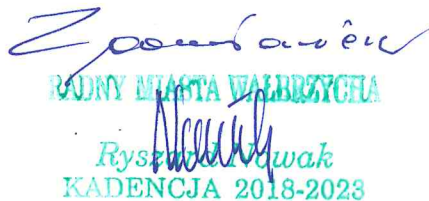 Z poważaniem
RADNY MIASTA WAŁBRZYCHA
Ryszard Nowak
KADENCJA 2018-2023